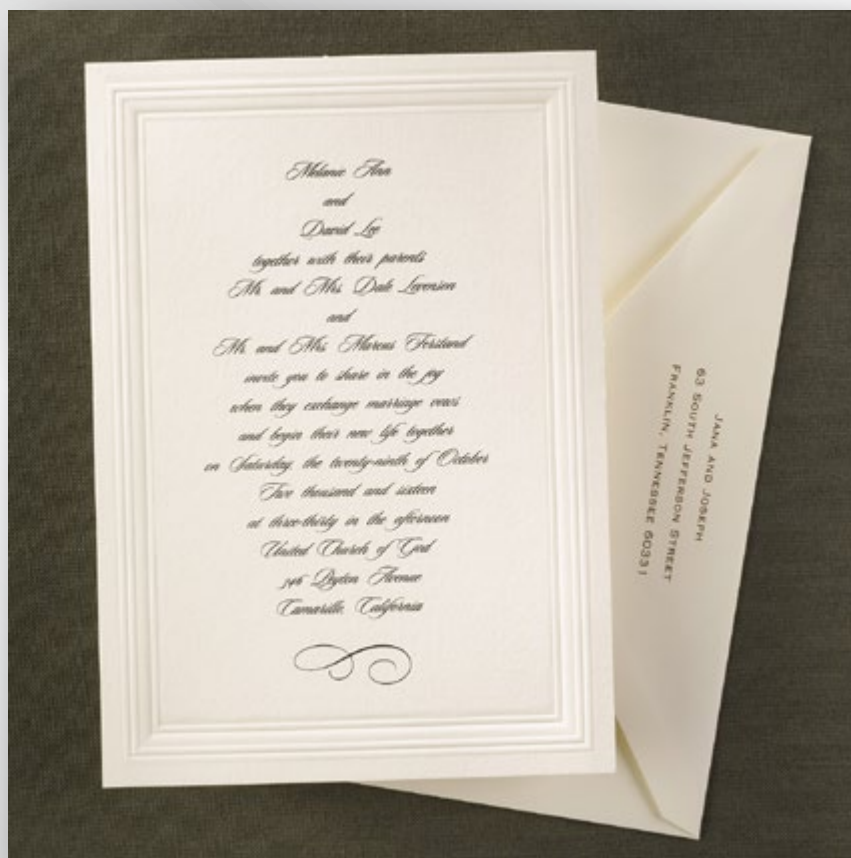 Melanie Ann
and
David Lee
together with their parents
Mr. and Mrs. Dale Levenson
and
Mr. and Mrs. Marcus Forsland
invite you to share in the joy
when they exchange marriage vows
and begin their new life together
on Saturday, the twenty-ninth of October
Two thousand and sixteen
at three-thirty in the afternoon
United Church of God
Peyton Avenue
Camarillo, California
JANA AND JOSEPH
63 SOUTH JEFFERSON STREET
FRANKLIN, TENNESSEE 60331